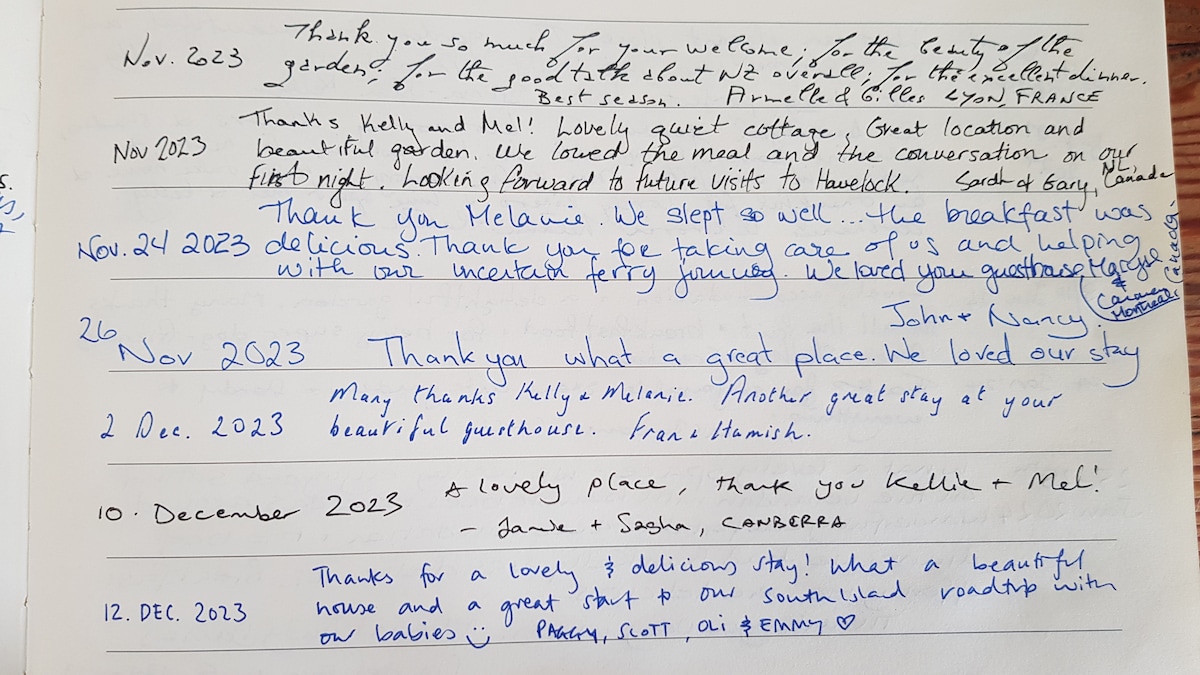 Nov. 2023
Thank you so much for your welcome; for the beauty of the
garden; for the good talk about NZ overall; for the excellent dinner.
Best season. Armelle & Gilles LYON, FRANCE
Nov 2023
Thanks Kelly and Mel! Lovely quiet cottage. Great location and
beautiful garden. We loved the meal and the conversation on our
first night. Looking forward to future visits to Havelock. Sarah & Gary, NL, Canada
Nov. 24 2023
Thank you Melanie. We slept so well... the breakfast was
delicious. Thank you for taking care of us and helping
with our uncertain ferry journey. We loved your guesthouse
&
Montreal, Canada
26 Nov 2023
John + Nancy.
Thank you what a great place. We loved our stay
2 Dec. 2023
Many thanks Kelly & Melanie. Another great stay at your
beautiful guesthouse. Fran & Hamish.
10. December 2023
A lovely place, thank you Kellie + Mel!
- Jamie + Sasha, CANBERRA
12. DEC. 2023
Thanks for a lovely & delicious stay! What a beautiful
house and a great start to our South Island roadtrip with
our babies PAGGY, SCOTT, OLI & EMMY ♡